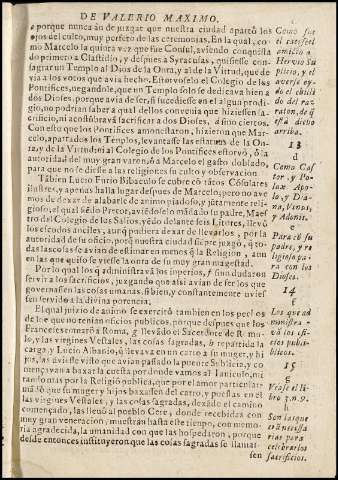 DE VALERIO MAXIMO.
porque nunca àn de juzgar que nuestra ciudad apartò los
ojos del culto, muy perfeto de las ceremonias. En la qual, co
mo Marcelo la quinta vez que fue Consul, aviendo conquista
do primero a Clastidio, y despues a Syracusas, quisiesse con
sagrar un Templo al Dios de la Onra, y al de la Virtud, que de
via a los votos que avia hecho. Estorvoselo el Colegio de los
Pontifices, negandole, que un Templo solo se dedicava bien a
dos Dioses, porque avia de ser, si sucediesse en el algun prodi-
gio, no podrian saber a qual dellos convenia que hiziessen sa-
crificio, ni acostumbrava sacrificar a dos Dioses, sino ciertos.
Con esto que los Pontifices amonestaron, hizieron que Mar-
celo, apartados los Templos, levantasse las estatuas de la On-
ra, y de la Virtud: ni al Colegio de los Pontifices estorvò, ò la
autoridad del muy gran varon, ò a Marcelo el gasto doblado,
para que no se diesse a las religiones su culto y observacion.
Tãbien Lucio Furio Bibaculo se cubre cõ rãtos Cõsulares
ilustres, y apenas halla lugar despues de Marcelo; pero no ave
mos de dexar de alabarle de animo piadoso, y jũtamente reli-
gioso, el qual siẽdo Pretor, aviẽdoselo mãdado su padre, Maes
tro del Colegio de los Salios, yẽdo delante seis Litores, llevò
los escudos anciles, aunq̃ pudiera dexar de llevarlos, por la
autoridad de su oficio, porq̃ nuestra ciudad siẽpre juzgò, q̃ to-
das las cosas se aviã de estimar en menos q̃ la Religion, aun
en las que quiso se viesse la onra de su muy gran magestad.
Por lo qual los q̃ administravã los imperios, ñ sino dudaron
servir a los sacrificios, juzgando que assi avian de ser los que
governassen las cosas umanas, si bien, y constantemente uvies
sen servido a la divina potencia;
El qual juizio de animo se exercitò tambien en los pechos
de los que no tenian oficios publicos, porque despues que los
Franceses tomarõ a Roma, q̃ llevãdo el Sacerdote de R-mu-
lo, y las virgines Vestales, las cosas sagradas, ò repartida la
carga, y Lucio Albanio, q̃ llevava en un carro a su muger, y hi
jos, las uviesse visto que avian passado la puente Sublicio, y co
mençavan a baxar la cuesta por donde vamos al Ianiculo, mi-
rando mas por la Religiõ publica, que por el amor particular
mãdò que su muger y hijos baxassen del carro, y puestas en el
las virgines Vestales, y las cosas sagradas, dexãdo el camino
començado, las llevò al pueblo Cere, donde recebidas con
muy gran veneracion, muestran hasta este tiempo, con memo-
ria agradecida, la umanidad con que las hospedaron, porque
desde entonces instituyeron que las cosas sagradas se llamas-
sen
Como fue
arriba.
13
d
Como Cas
tor, y Po-
lux, Apo-
lo, y Dia-
na, Venus,
y Adonis.
e
padre, y re
ligioso pa-
ra con los
Dioses.
14
f
Los que ad
ministra
vã los ofi-
cios publi-
blicos.
15
g
Vease el li-
bro 3.n.9.
h
Son las que
erã necessa
rias para
celebrar los
sacrificios.